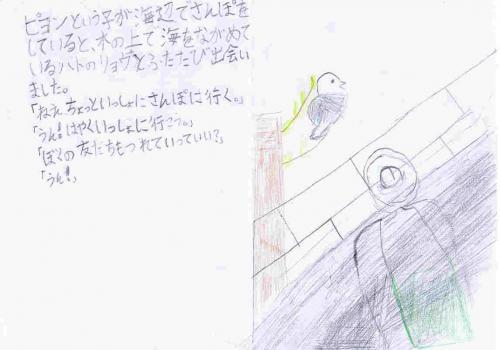 ピョンという子が海辺でさんぽを
していると、木の上で海をながめて
いるハトのリョヴとふたたび出会い
ました。
「ねえちょっといっしょにさんぽに行く。」
「うん!はやくいっしょに行こう。」
「ぼくの友だちもつれていっていい?」
「うん!」